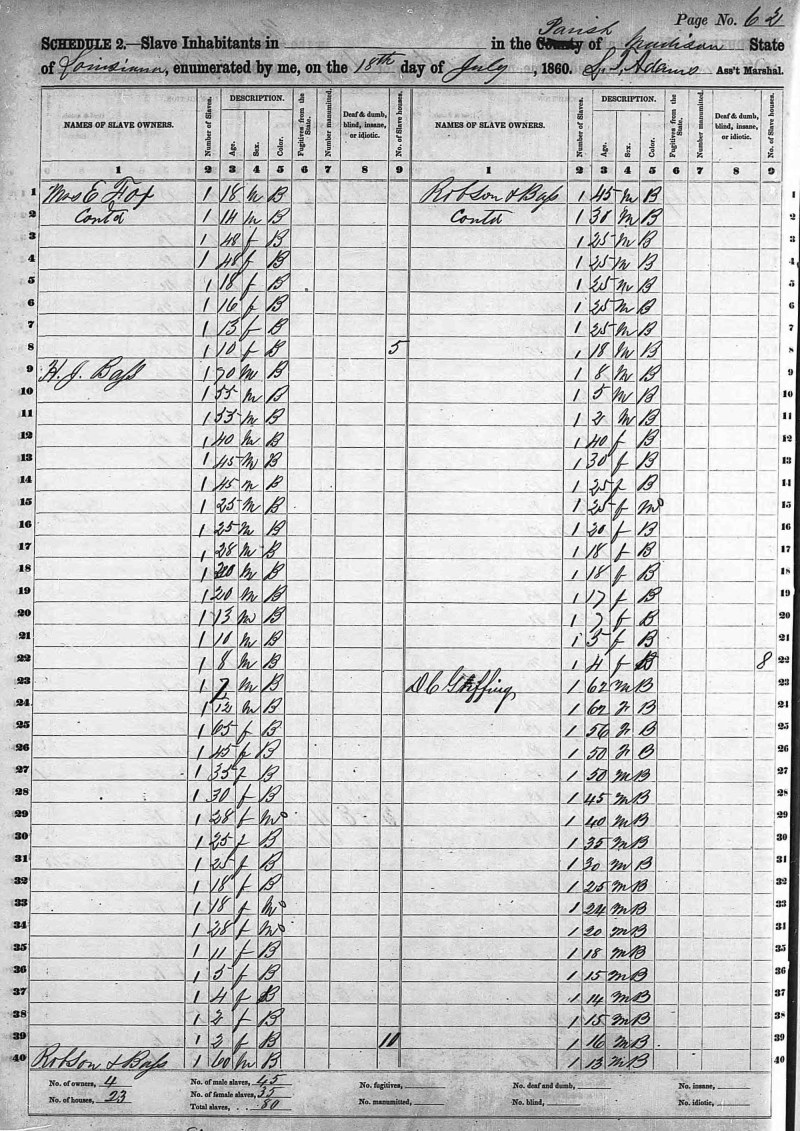 Page No. 62
SCHEDULE 2.—Slave Inhabitants in in the County Parish of Madison State
of Louisiana, enumerated by me, on the 18th day of July, 1860. Adams Ass't Marshal.
NAMES OF SLAVE OWNERS. Number of Slaves. DESCRIPTION. Age. Sex. Color. Fugitives from the State. Number manumitted. Deaf & dumb, blind, insane, or idiotic. No. of Slave houses. NAMES OF SLAVE OWNERS. Number of Slaves. DESCRIPTION. Age. Sex. Color. Fugitives from the State. Number manumitted. Deaf & dumb, blind, insane, or idiotic. No. of Slave houses.
1 2 3 4 5 6 7 8 9 1 2 3 4 5 6 7 8 9
1 Mrs E Fox 1 18 m B Robson & Bass 1 45 M B 1
2 Contd 1 14 m B Contd 1 30 M B 2
3 1 48 f B 1 25 M B 3
4 1 48 f B 1 25 M B 4
5 1 18 f B 1 25 M B 5
6 1 16 f B 1 25 M B 6
7 1 13 f B 1 25 M B 7
8 1 10 f B 5 1 18 M B 8
9 H. J. Bass 1 70 M B 1 8 M B 9
10 1 55 M B 1 5 M B 10
11 1 55 M B 1 2 M B 11
12 1 40 M B 1 40 f B 12
13 1 45 M B 1 30 f B 13
14 1 45 M B 1 25 f B 14
15 1 25 M B 1 25 f Mo 15
16 1 25 M B 1 20 f B 16
17 1 28 M B 1 18 f B 17
18 1 20 M B 1 18 f B 18
19 1 20 M B 1 17 f B 19
20 1 13 M B 1 7 f B 20
21 1 10 M B 1 5 f B 21
22 1 8 M B 1 4 f B 8 22
23 1 7 M B D C Griffing 1 62 M B 23
24 1 12 M B 1 62 B 24
25 1 65 f B 1 56 B 25
26 1 45 f B 1 50 B 26
27 1 35 f B 1 50 M B 27
28 1 30 f B 1 45 M B 28
29 1 28 f Mo 1 40 M B 29
30 1 25 f B 1 35 M B 30
31 1 25 f B 1 30 M B 31
32 1 18 f B 1 25 M B 32
33 1 18 f Mo 1 24 M B 33
34 1 28 f Mo 1 20 M B 34
35 1 11 f B 1 18 M B 35
36 1 5 f B 1 15 M B 36
37 1 4 f B 1 14 M B 37
38 1 2 f B 1 15 M B 38
39 1 2 f B 10 1 16 M B 39
40 Robson & Bass 1 60 M B 1 13 M B 40
No. of owners, 4 No. of male slaves, 45 No. fugitives, No. deaf and dumb, No. insane,
No. of houses, 23 No. of female slaves, 35 No. manumitted, No. blind, No. idiotic,
Total slaves, 80